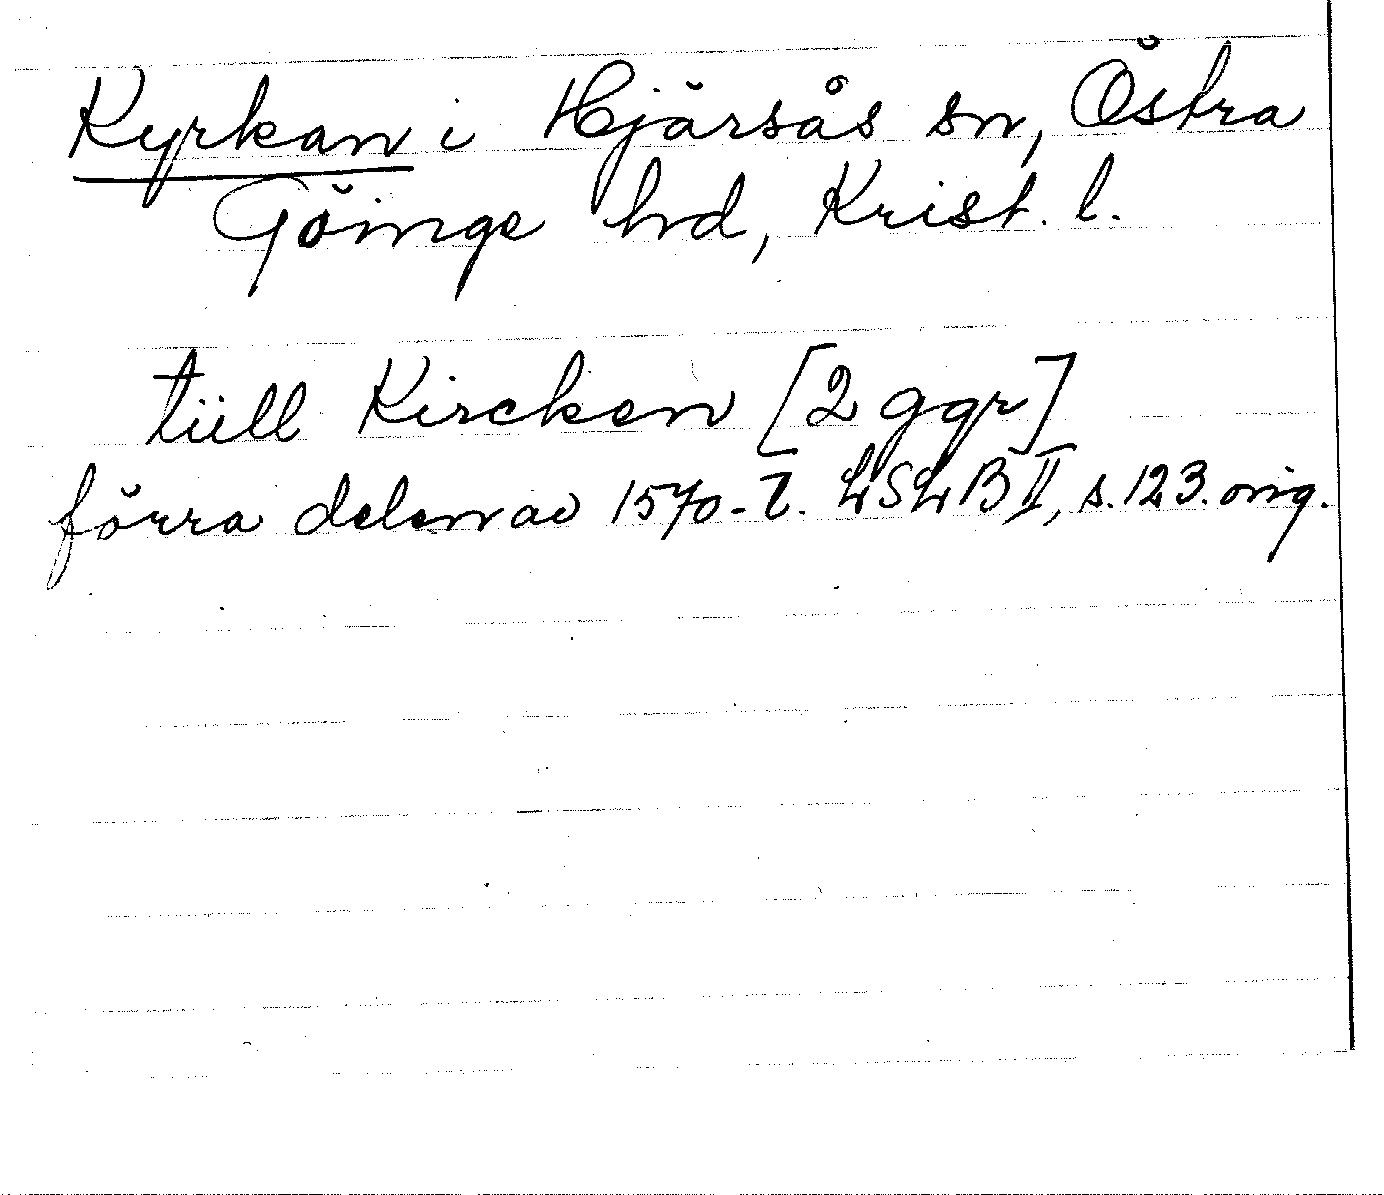 Kyrkan i Hjärsås sn, Östra
Göinge hd, Krist. l.
tiill Kircken [2 ggr]
förra delen av 1570-t. LSLB II, s. 123. orig.